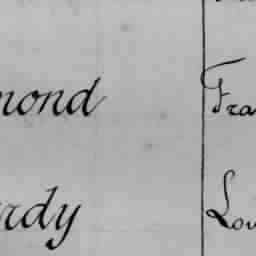 mond Fra
rdy Lou